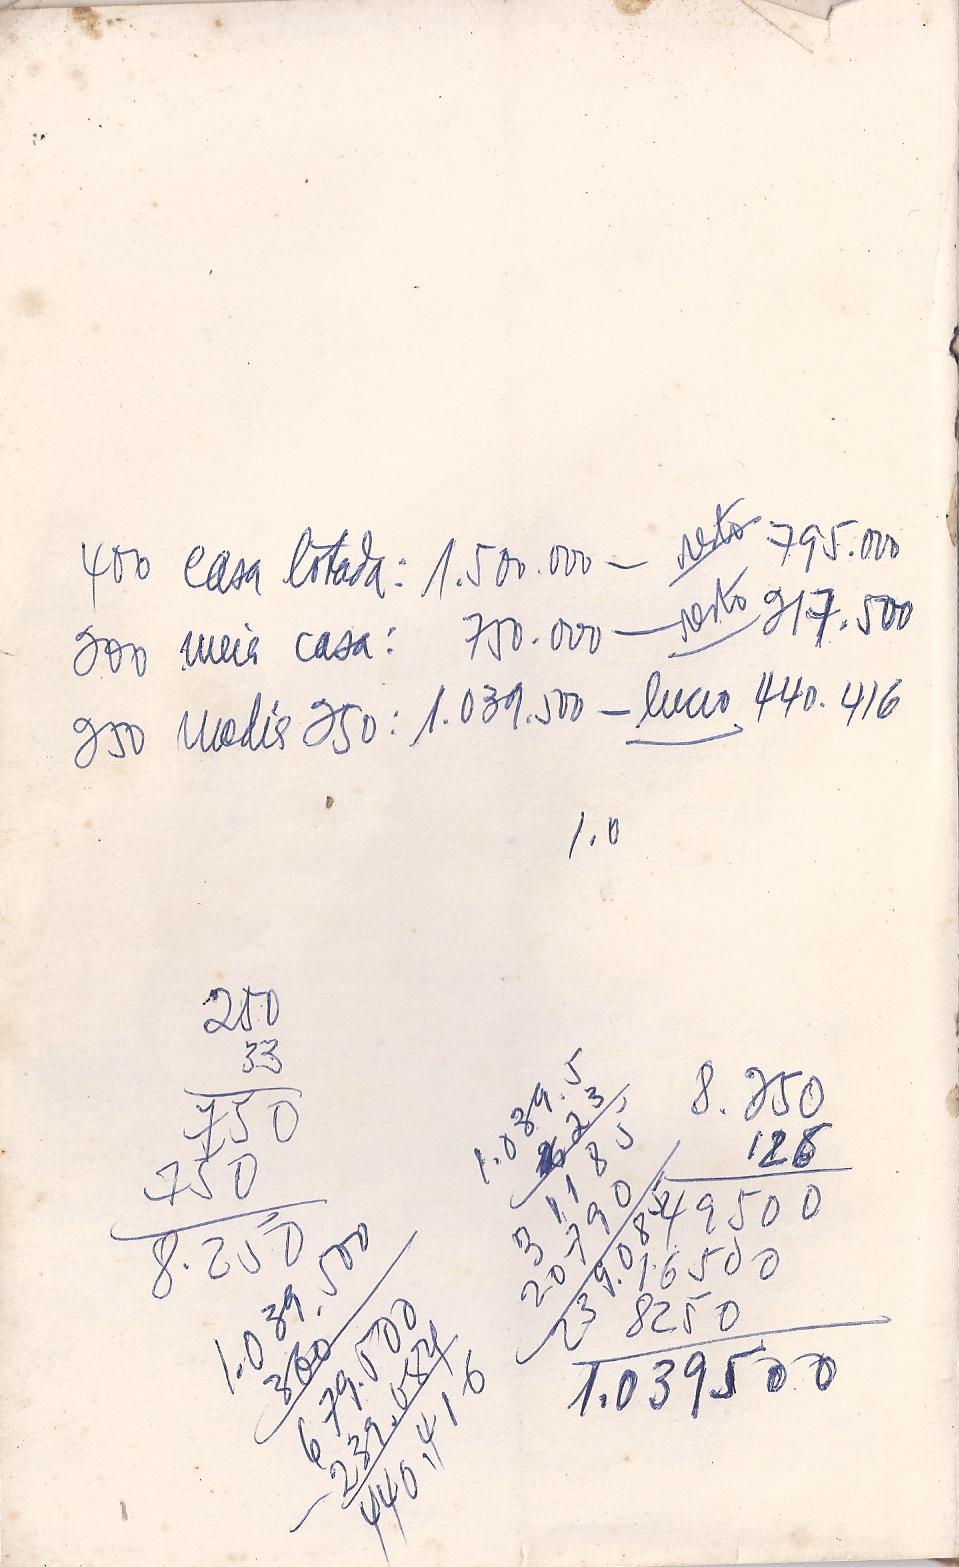 400 casa lotada: 1.500.000 — resto 795.000
200 meia casa: 750.000 — resto 217.500
250 média 250: 1.039.500 — lucro 440.416
1.0
250
33
750
750
8.250
1.039.500
360
679.500
239.084
440.416
1.039.5
23
3 1185
20790
239.085
8.250
126
49500
16500
8250
1.039500